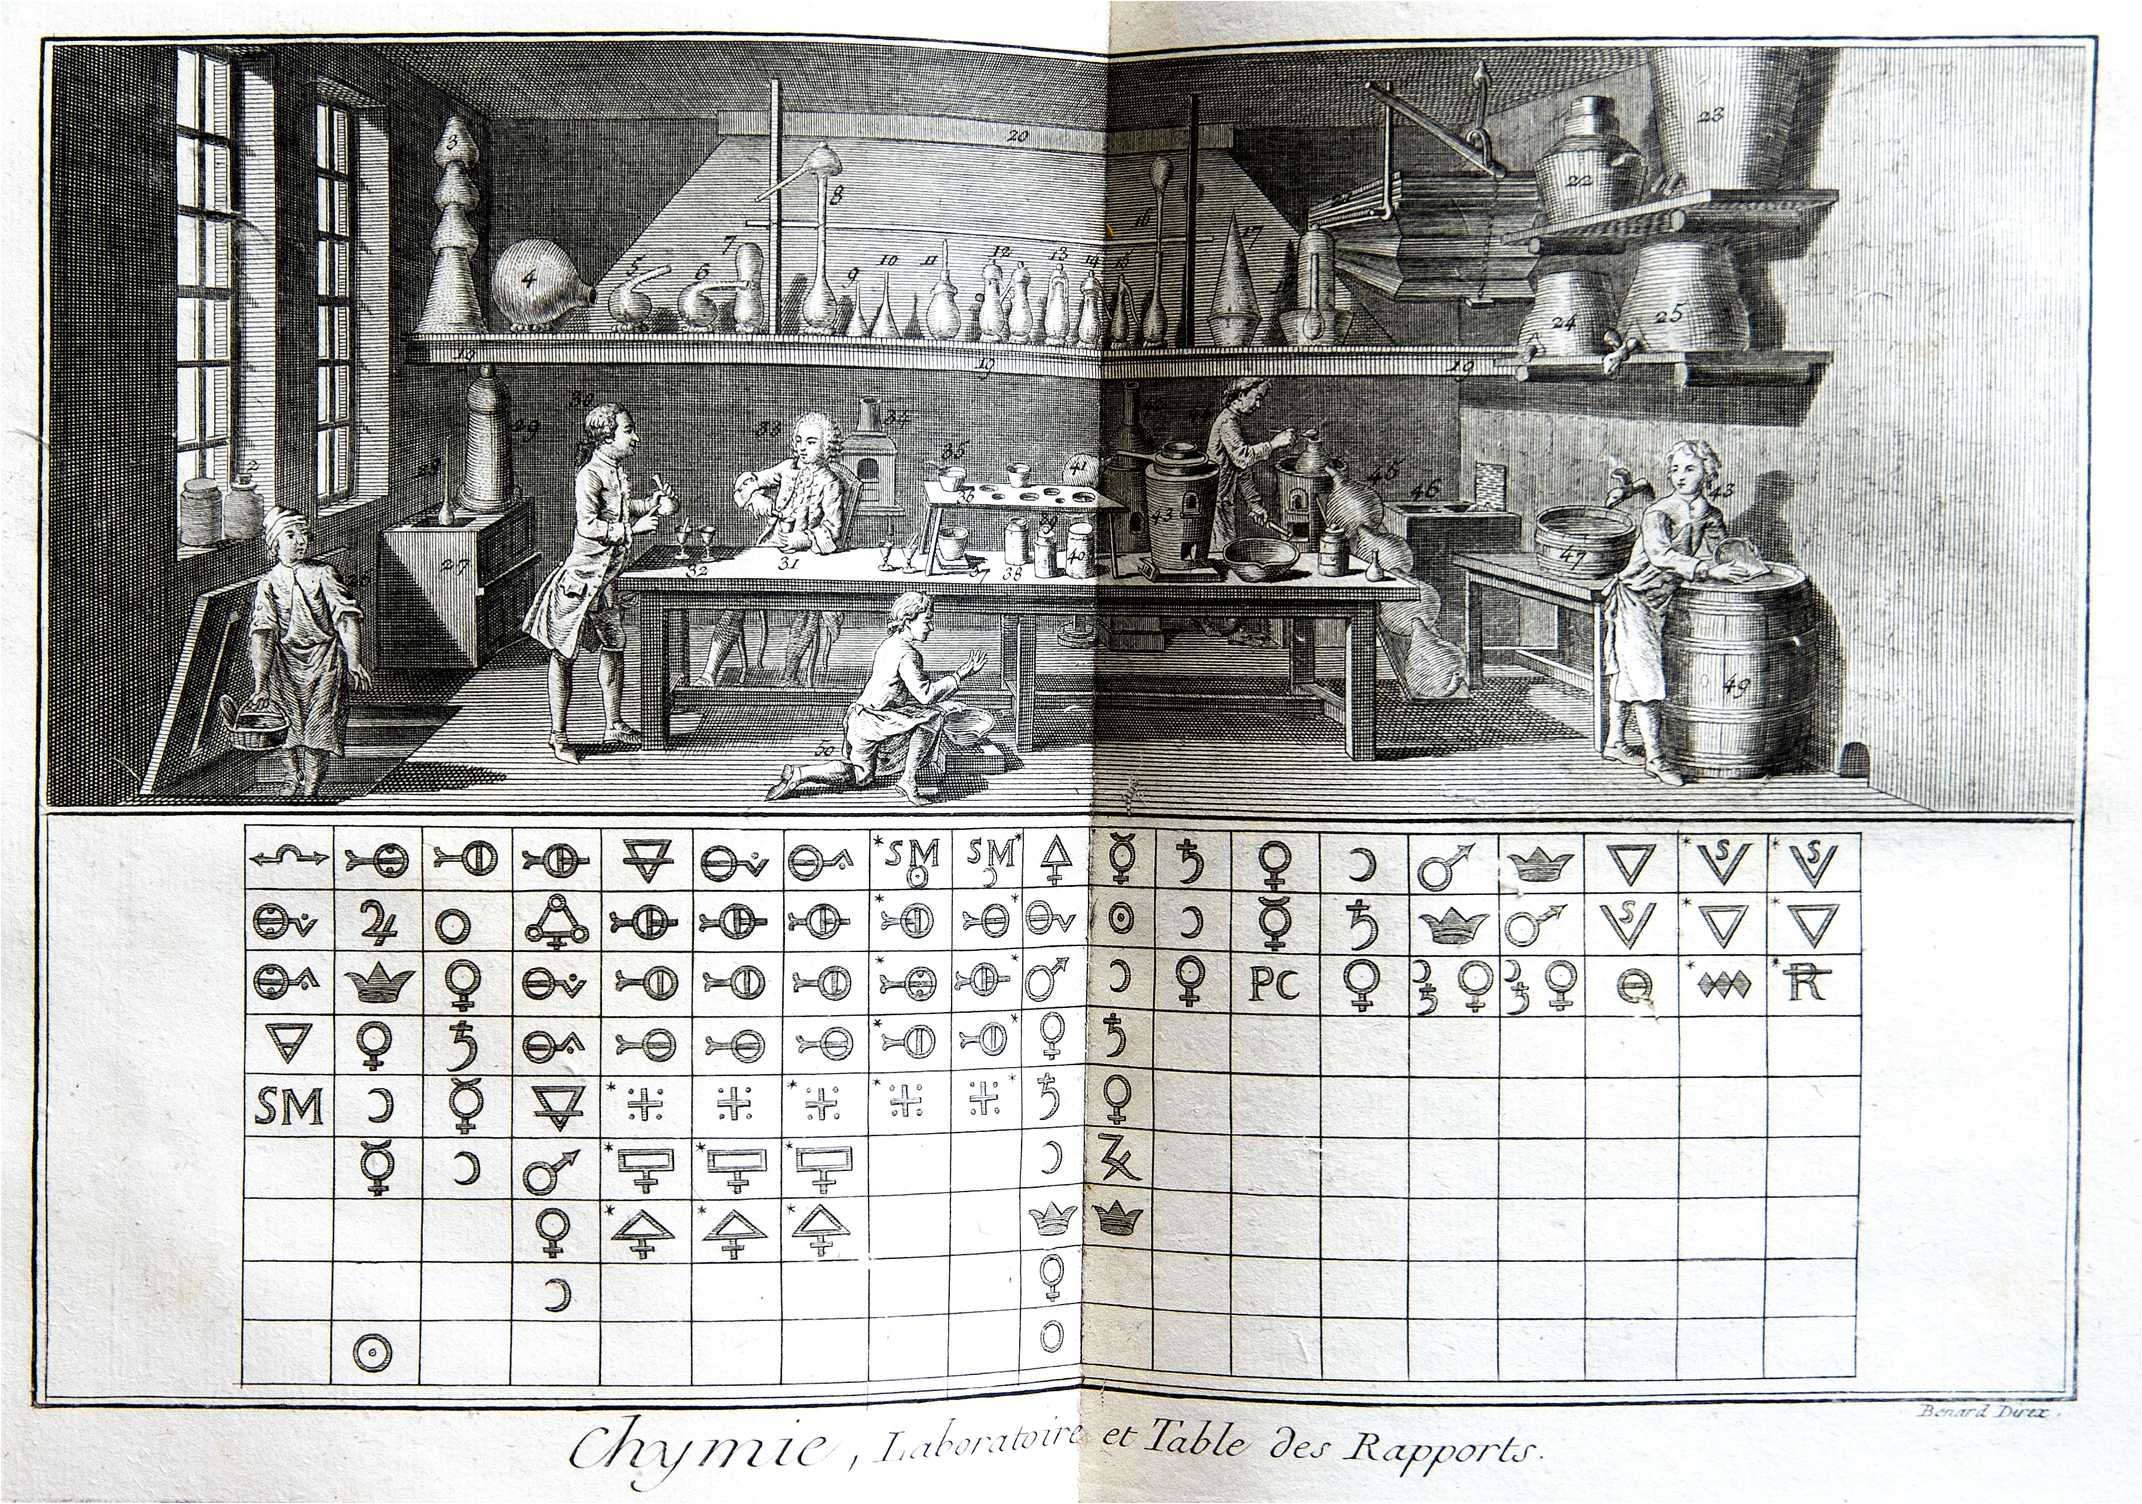 20
3
8
22
23
7
4
5
6
9
10
11
12
13
14
15
16
17
24
25
19
19
19
2
29
30
33
34
35
36
41
45
46
43
47
27
32
31
37
38
39
40
43
49
50
SM SM S S
S
PC R
SM
Benard Direx.
Chymie, Laboratoire et Table des Rapports.